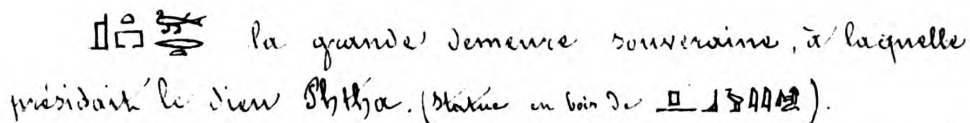 la grande demeure souveraine, à laquelle
présidait le dieu Phtha. (Statue en bois de ).